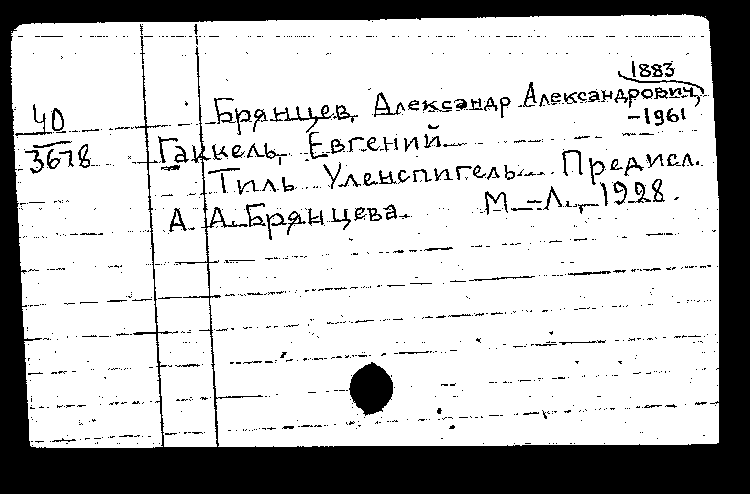 1883
40 Брянцев, Александр Александрович,
-1961
3678 Гаккель, Евгений
Тиль Уленспигель Предисл.
А. А. Брянцева. М.-Л., 1928.